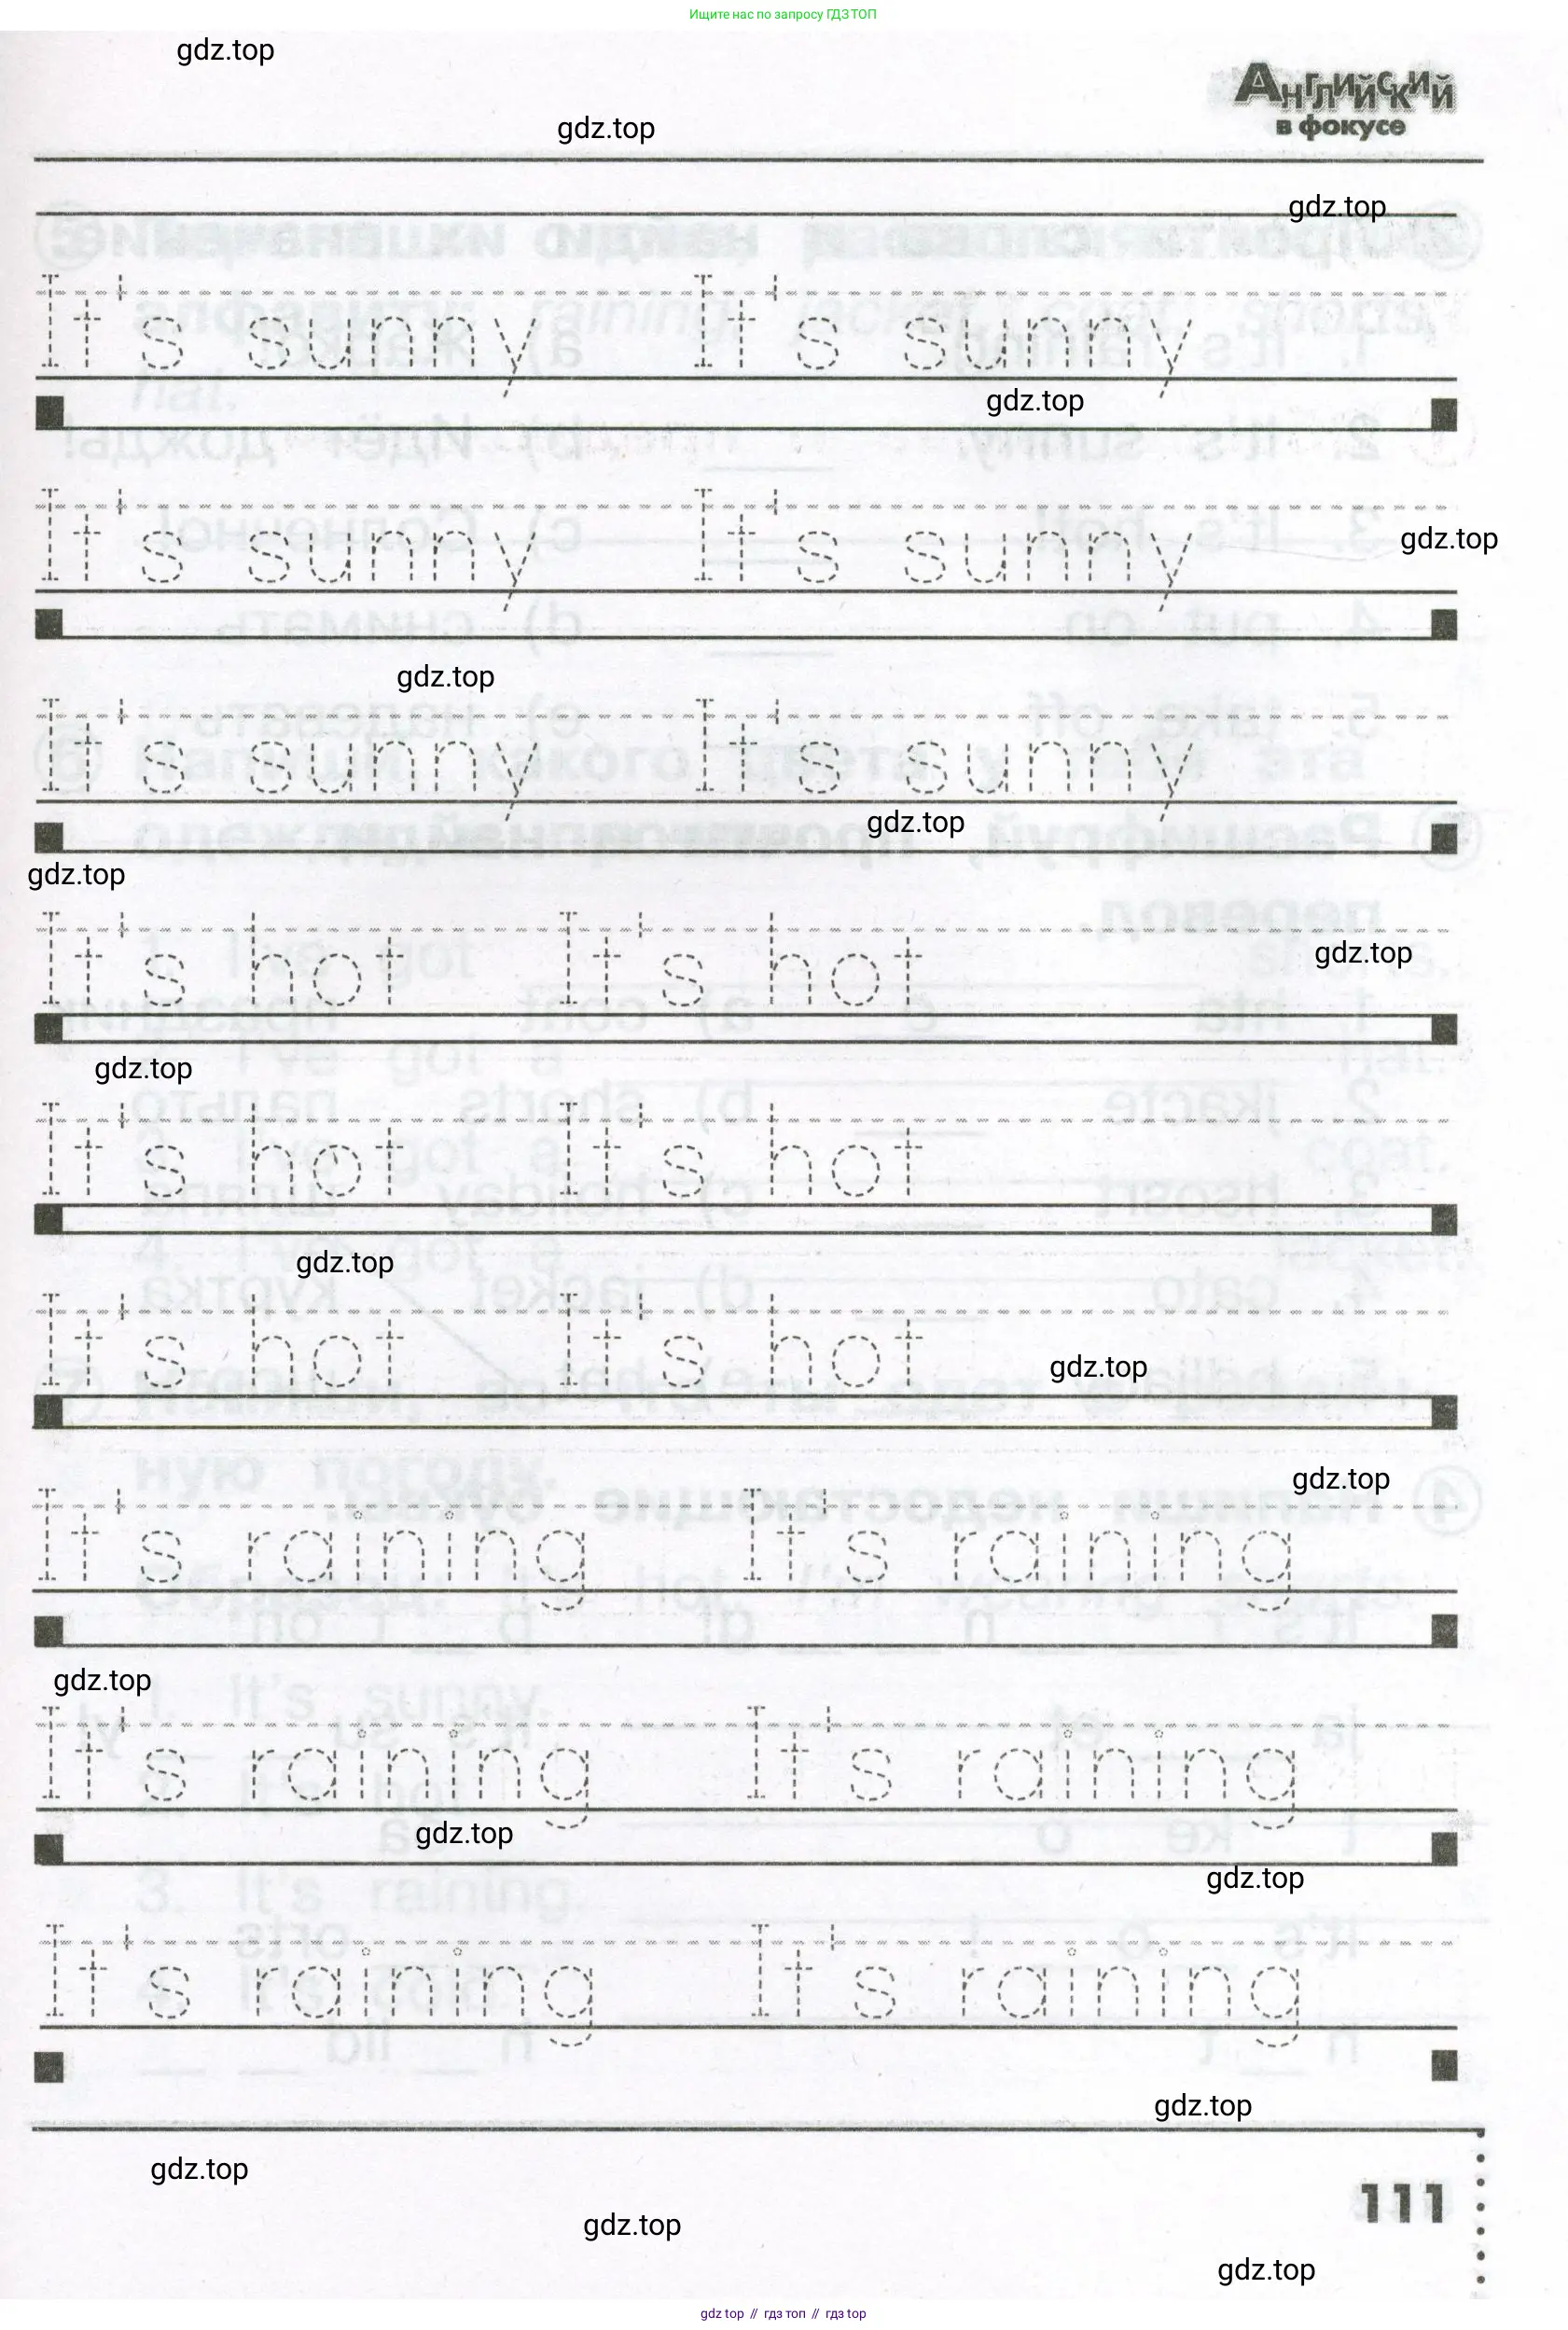 Ищите нас по запросу ГДЗ ТОП
gdz.top
Английский
в фокусе
gdz.top
gdz.top
It's sunny It's sunny
gdz.top
It's sunny It's sunny
gdz.top
gdz.top
It's sunny It's sunny
gdz.top
gdz.top
It's hot It's hot
gdz.top
gdz.top
It's hot It's hot
gdz.top
It's hot It's hot
gdz.top
gdz.top
It's raining It's raining
gdz.top
It's raining It's raining
gdz.top
gdz.top
It's raining It's raining
gdz.top
gdz.top
111
gdz.top
gdz.top
gdz top // гдз топ // гдз top